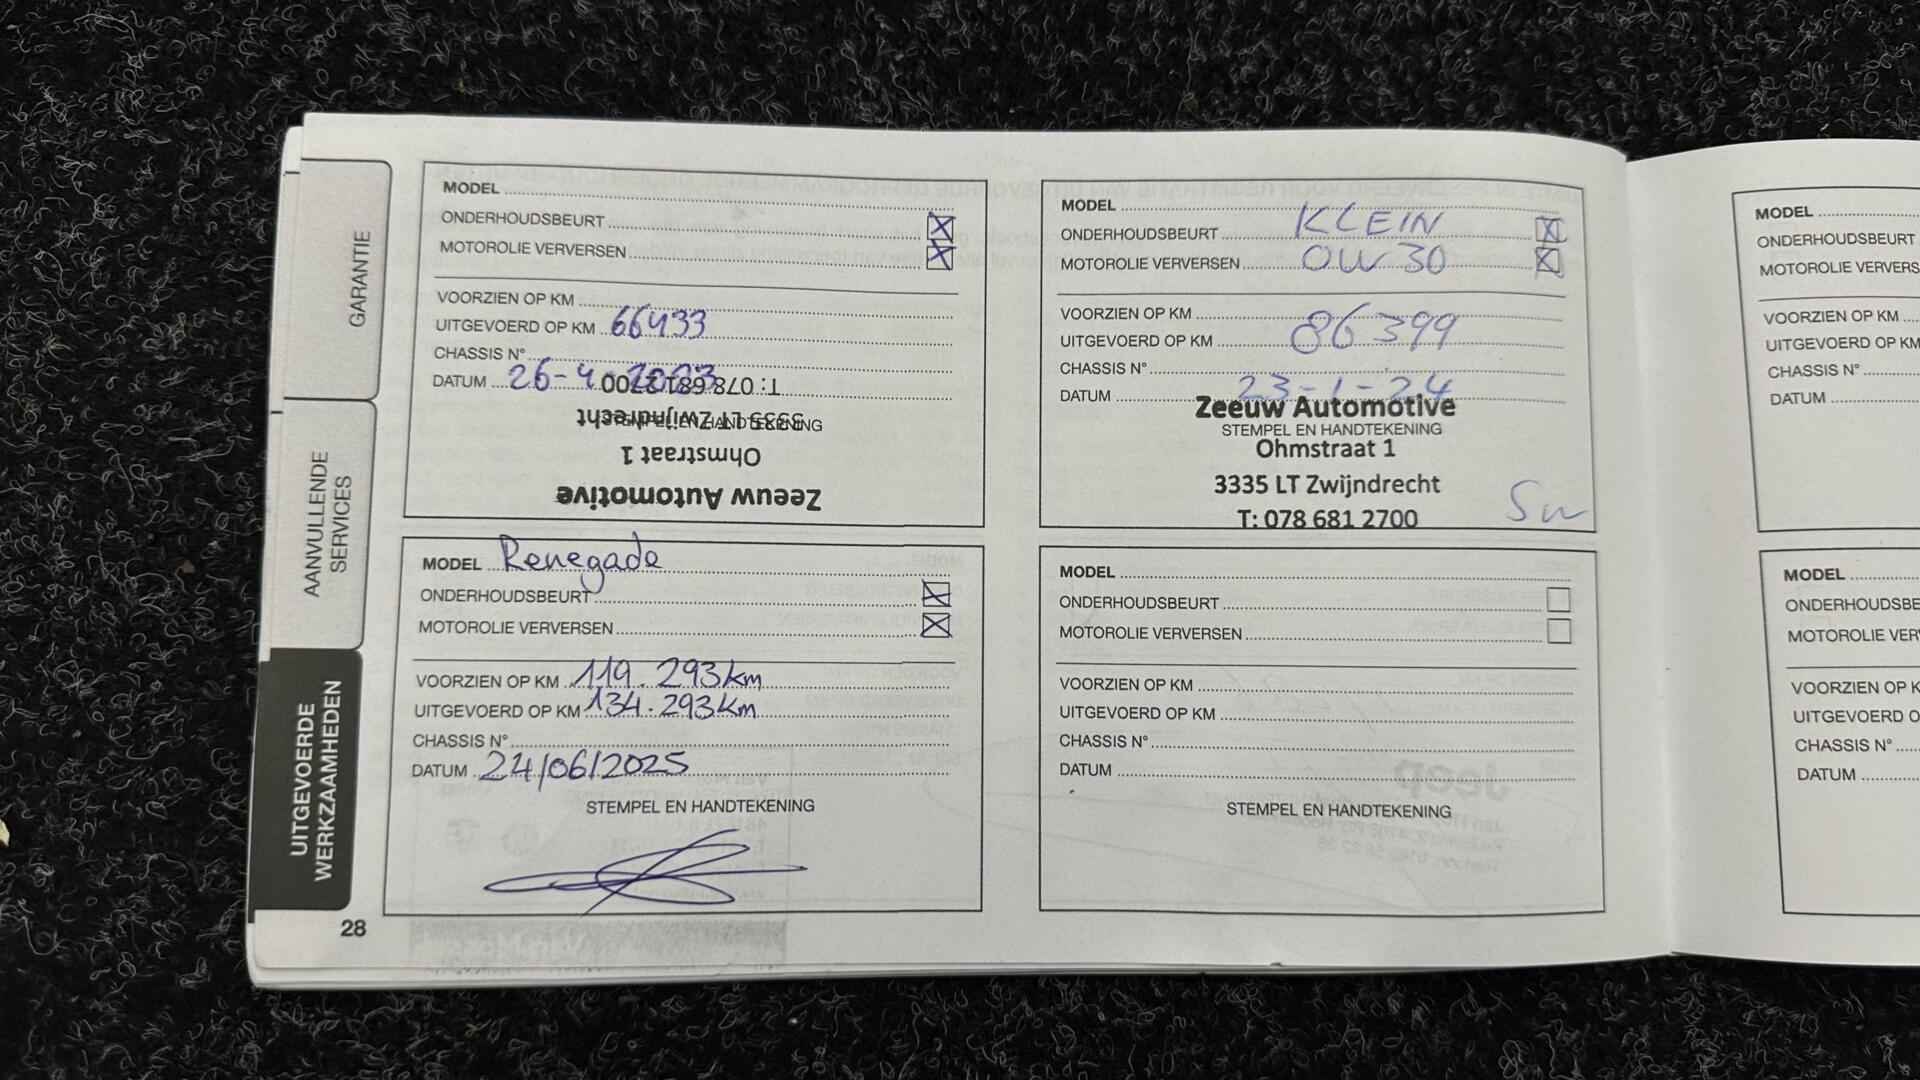 GARANTIE
AANVULLENDE
SERVICES
UITGEVOERDE
WERKZAAMHEDEN
MODEL
ONDERHOUDSBEURT
MOTOROLIE VERVERSEN
VOORZIEN OP KM
UITGEVOERD OP KM 66433
CHASSIS N°
DATUM 26-4-2023
STEMPEL EN HANDTEKENING
Zeeuw Automotive
Ohmstraat 1
3335 LT Zwijndrecht
T: 078 681 2700
MODEL
ONDERHOUDSBEURT KLEIN
MOTOROLIE VERVERSEN 0W30
VOORZIEN OP KM
UITGEVOERD OP KM 86399
CHASSIS N°
DATUM 23-1-24
Zeeuw Automotive
STEMPEL EN HANDTEKENING
Ohmstraat 1
3335 LT Zwijndrecht
T: 078 681 2700
MODEL Renegade
ONDERHOUDSBEURT
MOTOROLIE VERVERSEN
VOORZIEN OP KM 119.293km
UITGEVOERD OP KM 134.293km
CHASSIS N°
DATUM 24/06/2025
STEMPEL EN HANDTEKENING
MODEL
ONDERHOUDSBEURT
MOTOROLIE VERVERSEN
VOORZIEN OP KM
UITGEVOERD OP KM
CHASSIS N°
DATUM
STEMPEL EN HANDTEKENING
28
MODEL
ONDERHOUDSBEURT
MOTOROLIE VERVERS
VOORZIEN OP KM
UITGEVOERD OP KM
CHASSIS N°
DATUM
MODEL
ONDERHOUDSBE
MOTOROLIE VER
VOORZIEN OP K
UITGEVOERD O
CHASSIS N°
DATUM